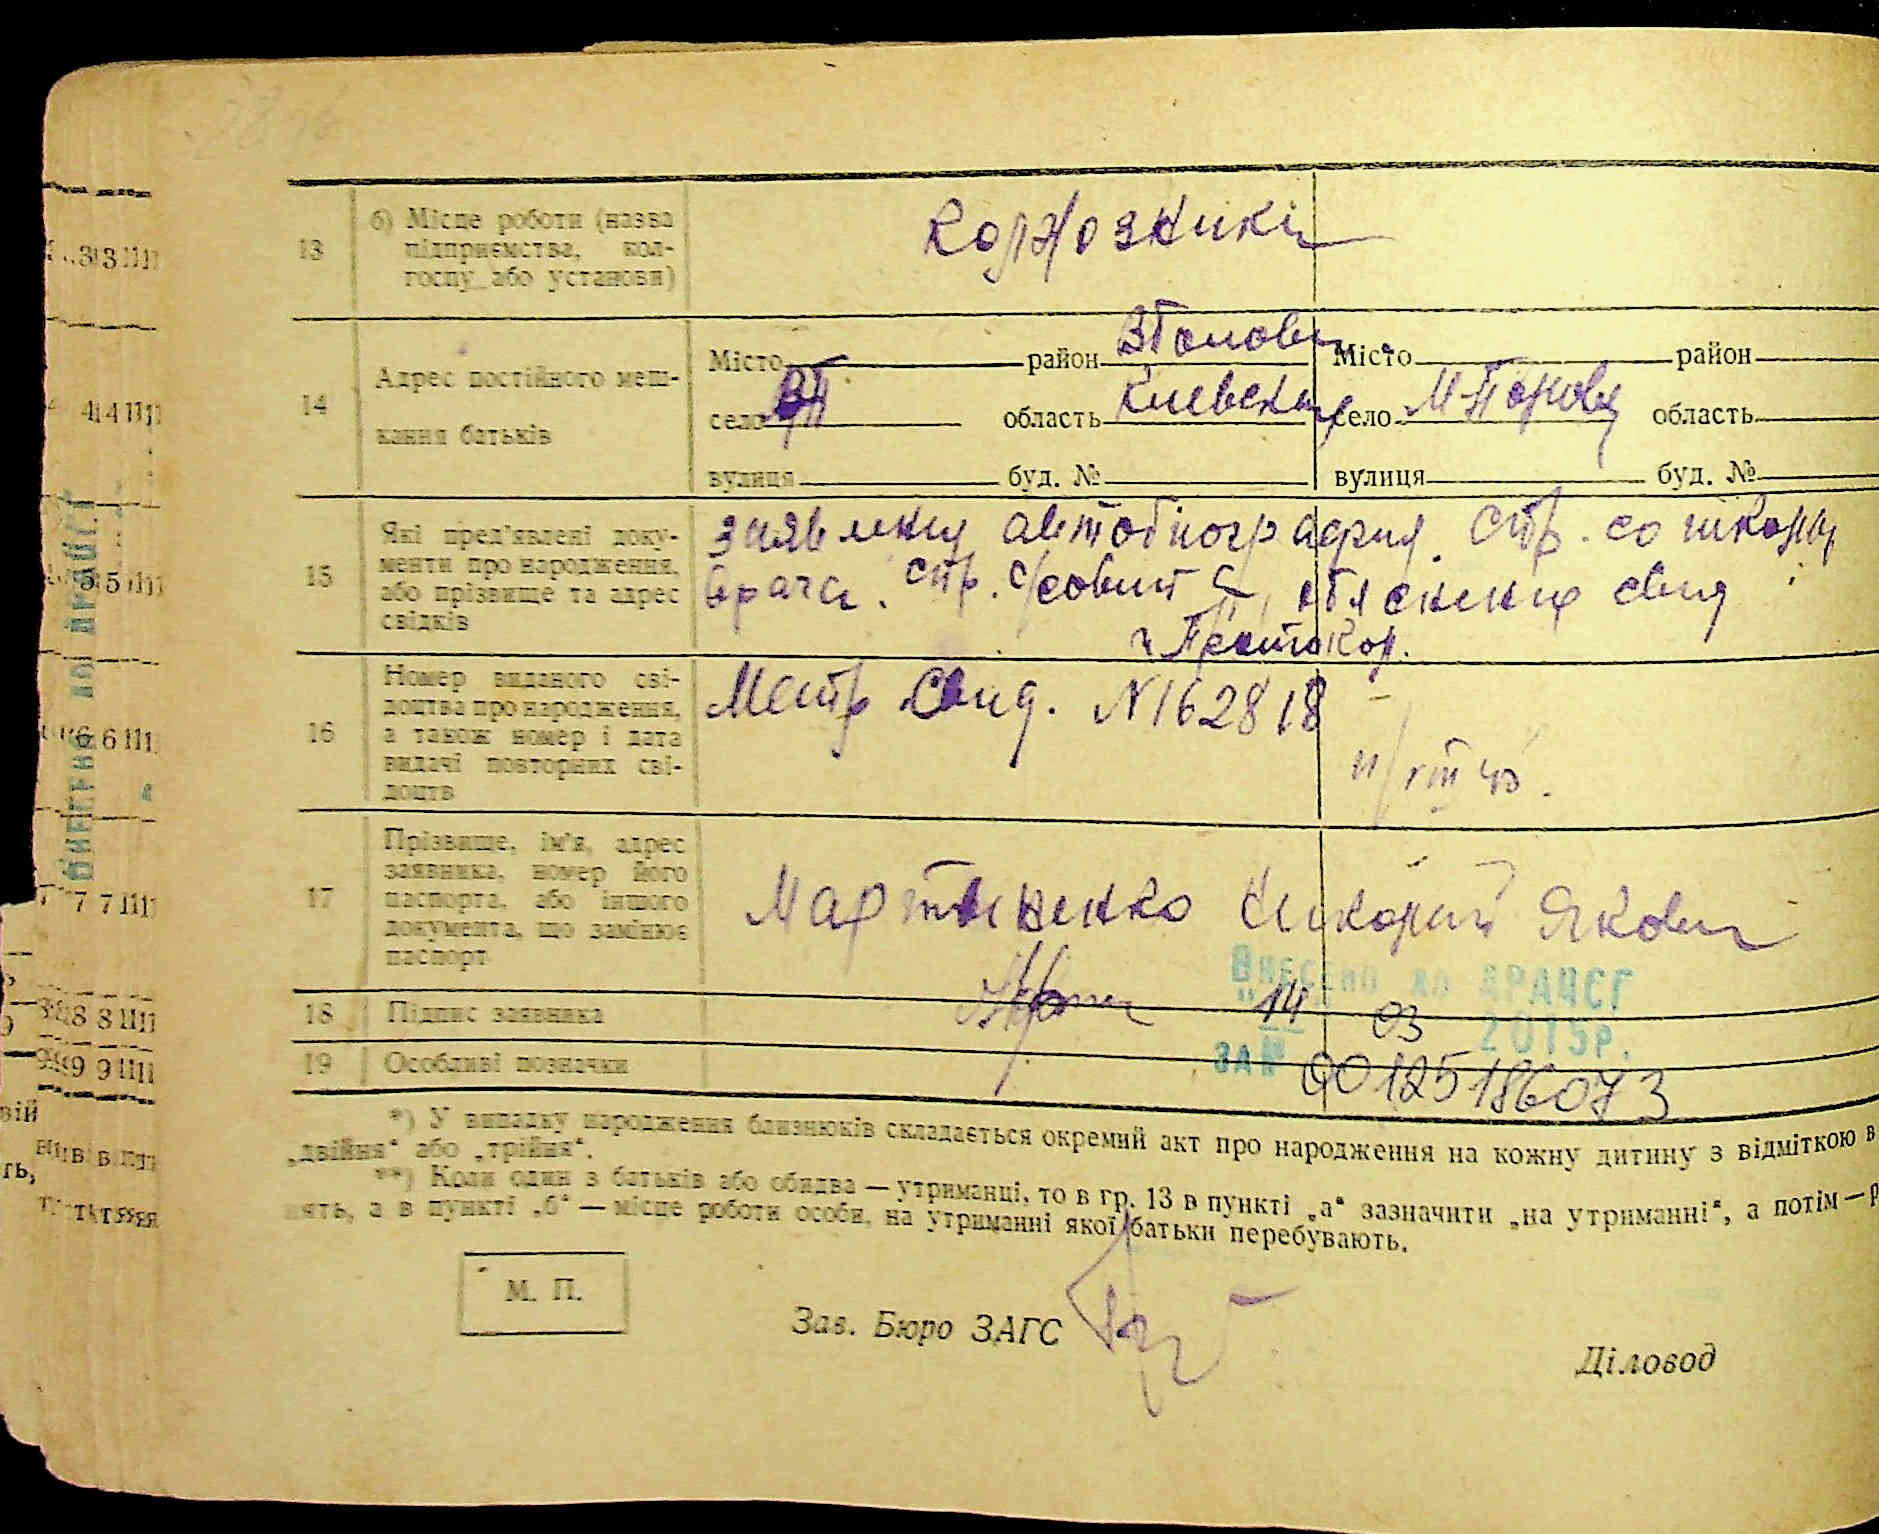 13
б) Місце роботи (назва
підприємства, кол-
госпу або установи)
14
Адрес постійного меш-
кання батьків
Місто район
село область
вулиця буд. №
Місто район
село область
вулиця буд. №
15
Які пред'явлені доку-
менти про народження,
або прізвище та адрес
свідків
автобиография. спр. со школы
врача. спр. с/совит
Протокол.
16
Номер виданого сві-
доцтва про народження,
а також номер і дата
видачі повторних сві-
доцтв
Метр Свид. N162818
17
Прізвище, ім'я, адрес
заявника, номер його
паспорта, або іншого
документа, що замінює
паспорт
Мартиненко Николай Якович
18
Підпис заявника
19
Особливі позначки
Внесено до ДРАЦСГ
"14" 03 2015р.
ЗА № 00125186073
*) У випадку народження близнюків складається окремий акт про народження на кожну дитину з відміткою в
„двійня“ або „трійня“.
**) Коли один з батьків або обидва — утриманці, то в гр. 13 в пункті „а“ зазначити „на утриманні“, а потім —
нять, а в пункті „б“ — місце роботи особи, на утриманні якої батьки перебувають.
М. П.
Зав. Бюро ЗАГС
Діловод